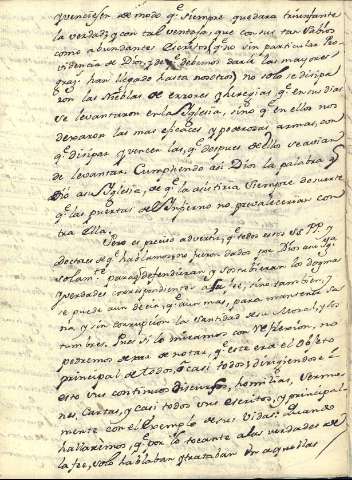 y vencieſen de modo q.e siempre quedara triunfante
la verdad; y con tal ventaja, que con sus tan Sabios
como abundantes Escritos (q.e no sin particular Pro-
videncia de Dios, de q.e debemos darle las mayores
gra.s han llegado hasta nosotros) no solo se disipa
ron las Nieblas de errores y heregias q.e en sus dias
se levantaron en la Yglesia, sino q.e en ellos nos
dexaron las mas eficaces y poderosas armas, con
q.e disipar y vencer las, q.e despues de ellos se avian
de levantar. Cumpliendo asi Dios la palabra q.e
dio a su Yglesia, de q.e la asistiria siempre de suerte
q.e las puertas del Ynfierno no prevalecerian con
tra Ella.
Pero es preciso advertir, q.e todos estos S.s PP. y
Doctores de q.e hablamos, no fueron dados por Dios a su Yg.a
solam.te para q.e defendieran y sostubieran los dogmas
y verdades correspondientes a la fee, sino tambien,
se puede aun decir, q.e aun mas, para mantener sa
na y sin corrupcion la Santidad de su Moral, y cos
tumbres. Pues si lo miramos con reflexion, no
podremos dexar de notar, q.e este era el objeto
principal de todos, ó casi todos; dirigiendose á
esto sus continuos discursos, homilias, Sermo
nes, Cartas, y casi todos sus escritos, y principal-
mente con el Exemplo de sus vidas: Quando
hallaremos, q.e por lo tocante a las verdades de
la fee, solo hablaban y trataban de aquellas